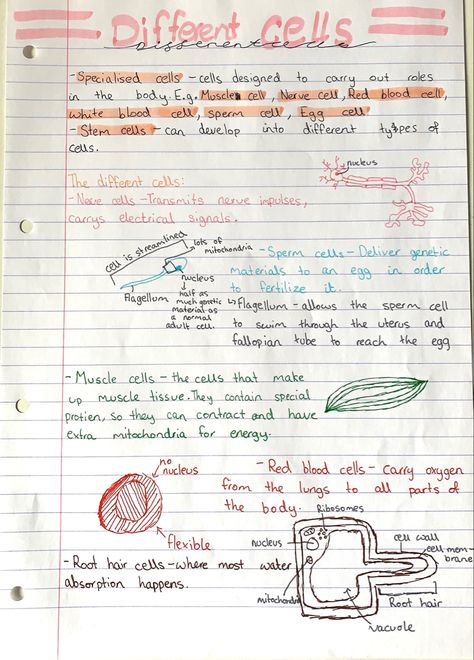 Different cells
Different cells
- Specialised cells - cells designed to carry out roles
in the body. E.g. Muscle cell, Nerve cell, Red blood cell,
white blood cell, sperm cell, Egg cell
- Stem cells - can develop into different types of
cells.
nucleus
The different cells:
- Nerve cells - Transmits nerve impulses,
carrys electrical signals.
cell is streamlined
lots of
mitochondria
- Sperm cells - Deliver genetic
materials to an egg in order
to fertilize it.
nucleus
Flagellum
half as
much genetic
material as
a normal
adult cell.
↳ Flagellum - allows the sperm cell
to swim through the uterus and
fallopian tube to reach the egg
- Muscle cells - the cells that make
up muscle tissue. They contain special
protien, so they can contract and have
extra mitochondria for energy.
no
nucleus
- Red blood cells - Carry oxygen
from the lungs to all parts of
the body.
flexible
Ribosomes
nucleus
cell wall
cell mem-
brane
- Root hair cells - where most water
absorption happens.
mitochondria
Root hair
vacuole